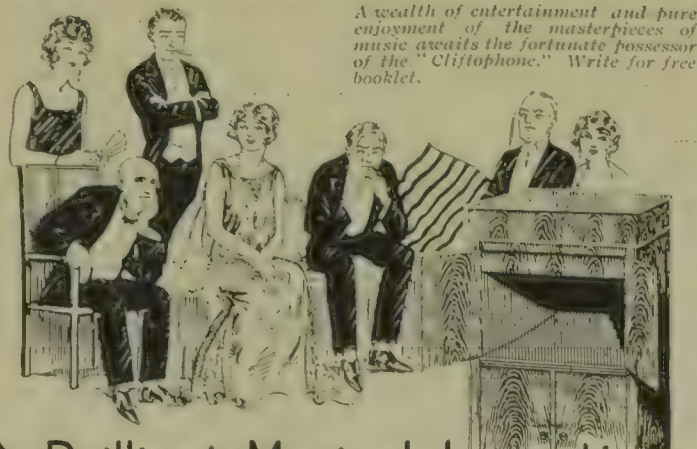 A wealth of entertainment and pure
enjoyment of the masterpieces of
music awaits the fortunate possessor
of the "Cliftophone." Write for free
booklet.
Brilliant Musical